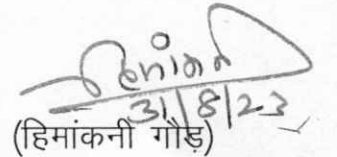 31/8/23
(हिमांकनी गौड़)